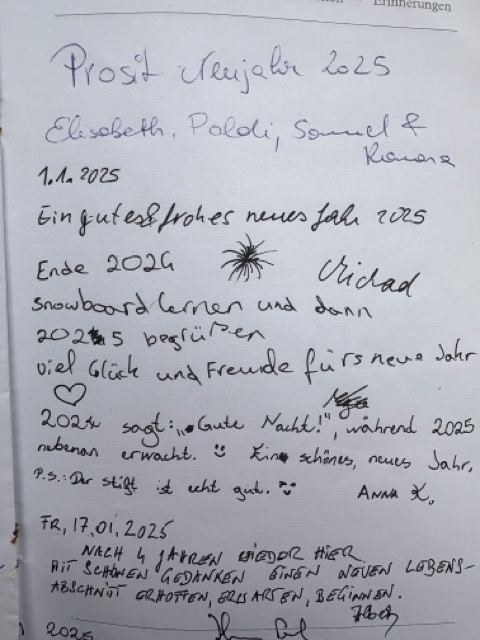 Erinnerungen
Prosit Neujahr 2025
Elisabeth, Poldi, Samuel &
1.1.2025
Ein gutes & frohes neues Jahr 2025
Ende 2024
Michael
Snowboard lernen und dann
2025 begrüßen
Viel Glück und Freude fürs neue Jahr
♡
2024 sagt: „Gute Nacht!", während 2025
nebenan erwacht. Ein schönes, neues Jahr,
P.S.: Der Stift ist echt gut.
ANNA K.
FR, 17.01.2025
NACH 4 JAHREN WIEDER HIER
MIT SCHÖNEN GEDANKEN EINEN NEUEN LEBENS-
ABSCHNITT ERHOFFEN, ERWARTEN, BEGINNEN.
2025